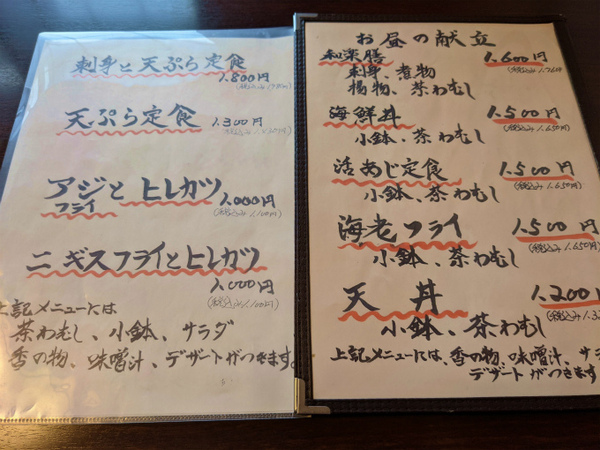 刺身と天ぷら定食
1.800円
天ぷら定食 1.300円
アジと ヒレカツ
フライ
1.000円
(税込み1.100円)
ニギスフライとヒレカツ
1.000円
(税込み1.100円)
上記メニューには
茶わむし、小鉢、サラダ
香の物、味噌汁、デザートがつきます。
お昼の献立
和楽膳 1.600円
刺身、煮物
揚物、茶わむし
海鮮丼 1.500円
(税込み1.650円)
小鉢、茶わむし
活あじ定食 1.500円
(税込み1.650円)
小鉢、茶わむし
海老フライ 1.500円
(税込み1.650円)
小鉢、茶わむし
天丼 1.200円
小鉢、茶わむし
上記メニューには、香の物、味噌汁、サラ
デザートがつきます